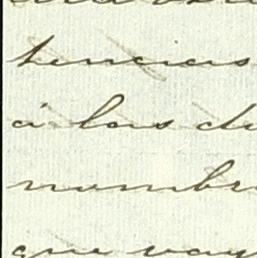 tencias
á las di
nombr
que vay